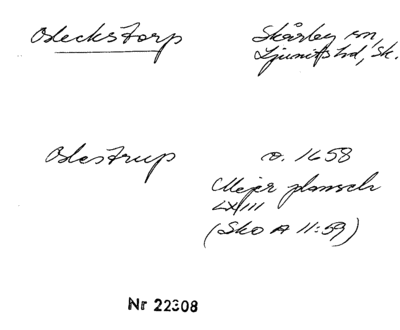 Bleckstorp
Skårby sn,
Ljunits hd, Sk.
Blestrup
o. 1658
Mejer plansch
LXIII
(Sko A 11:59)
Nr 22308